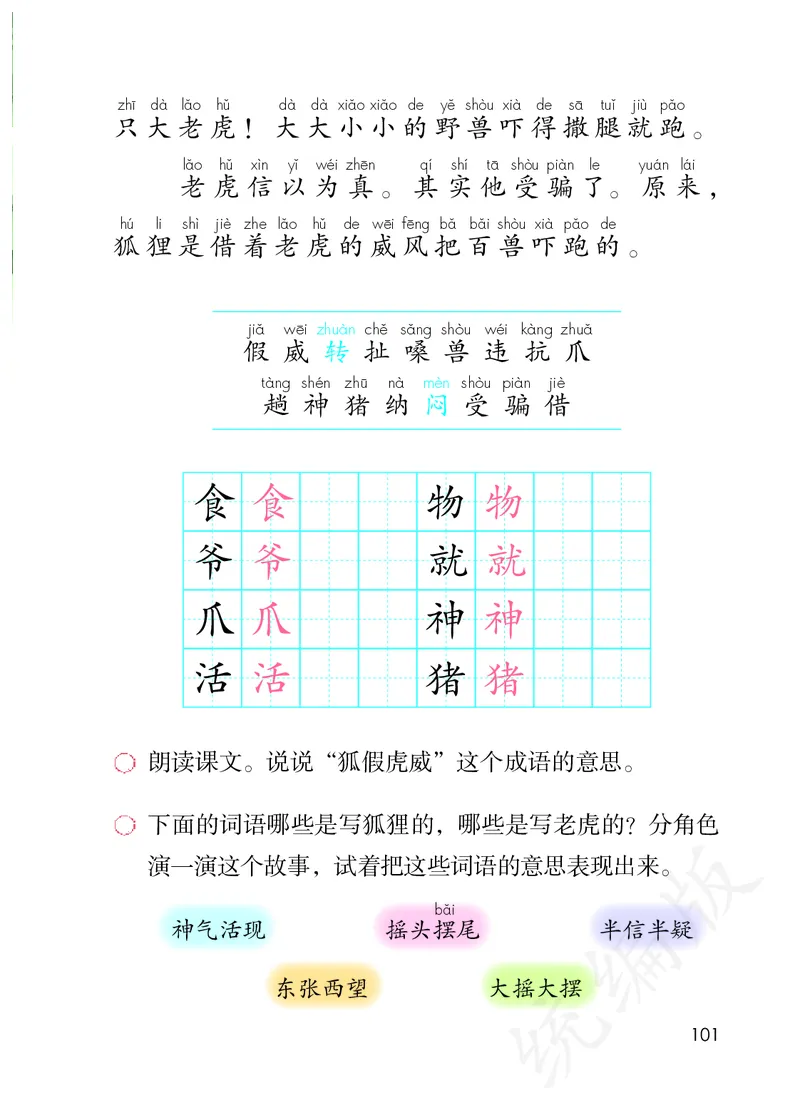 zhī dà lǎo hǔ dà dà xiǎo xiǎo de yě shòu xià de sā tuǐ jiù pǎo
只大老虎！大大小小的野兽吓得撒腿就跑。
lǎo hǔ xìn yǐ wéi zhēn qí shí tā shòu piàn le yuán lái
老虎信以为真。其实他受骗了。原来，
hú li shì jiè zhe lǎo hǔ de wēi fēng bǎ bǎi shòu xià pǎo de
狐狸是借着老虎的威风把百兽吓跑的。
jiǎ wēi zhuàn chě sǎng shòu wéi kàng zhuǎ
假 威 转 扯 嗓 兽 违 抗 爪
tàng shén zhū nà mèn shòu piàn jiè
趟 神 猪 纳 闷 受 骗 借
食 食 物 物
爷 爷 就 就
爪 爪 神 神
活 活 猪 猪
朗读课文。说说“狐假虎威”这个成语的意思。
下面的词语哪些是写狐狸的，哪些是写老虎的？分角色
演一演这个故事，试着把这些词语的意思表现出来。
bǎi
神气活现 摇头摆尾 半信半疑
东张西望 大摇大摆
统编版
101